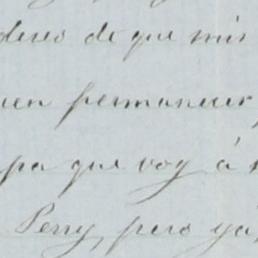 deseo de que mis
en permanecer,
pa que voy á
Perry, pero ya,